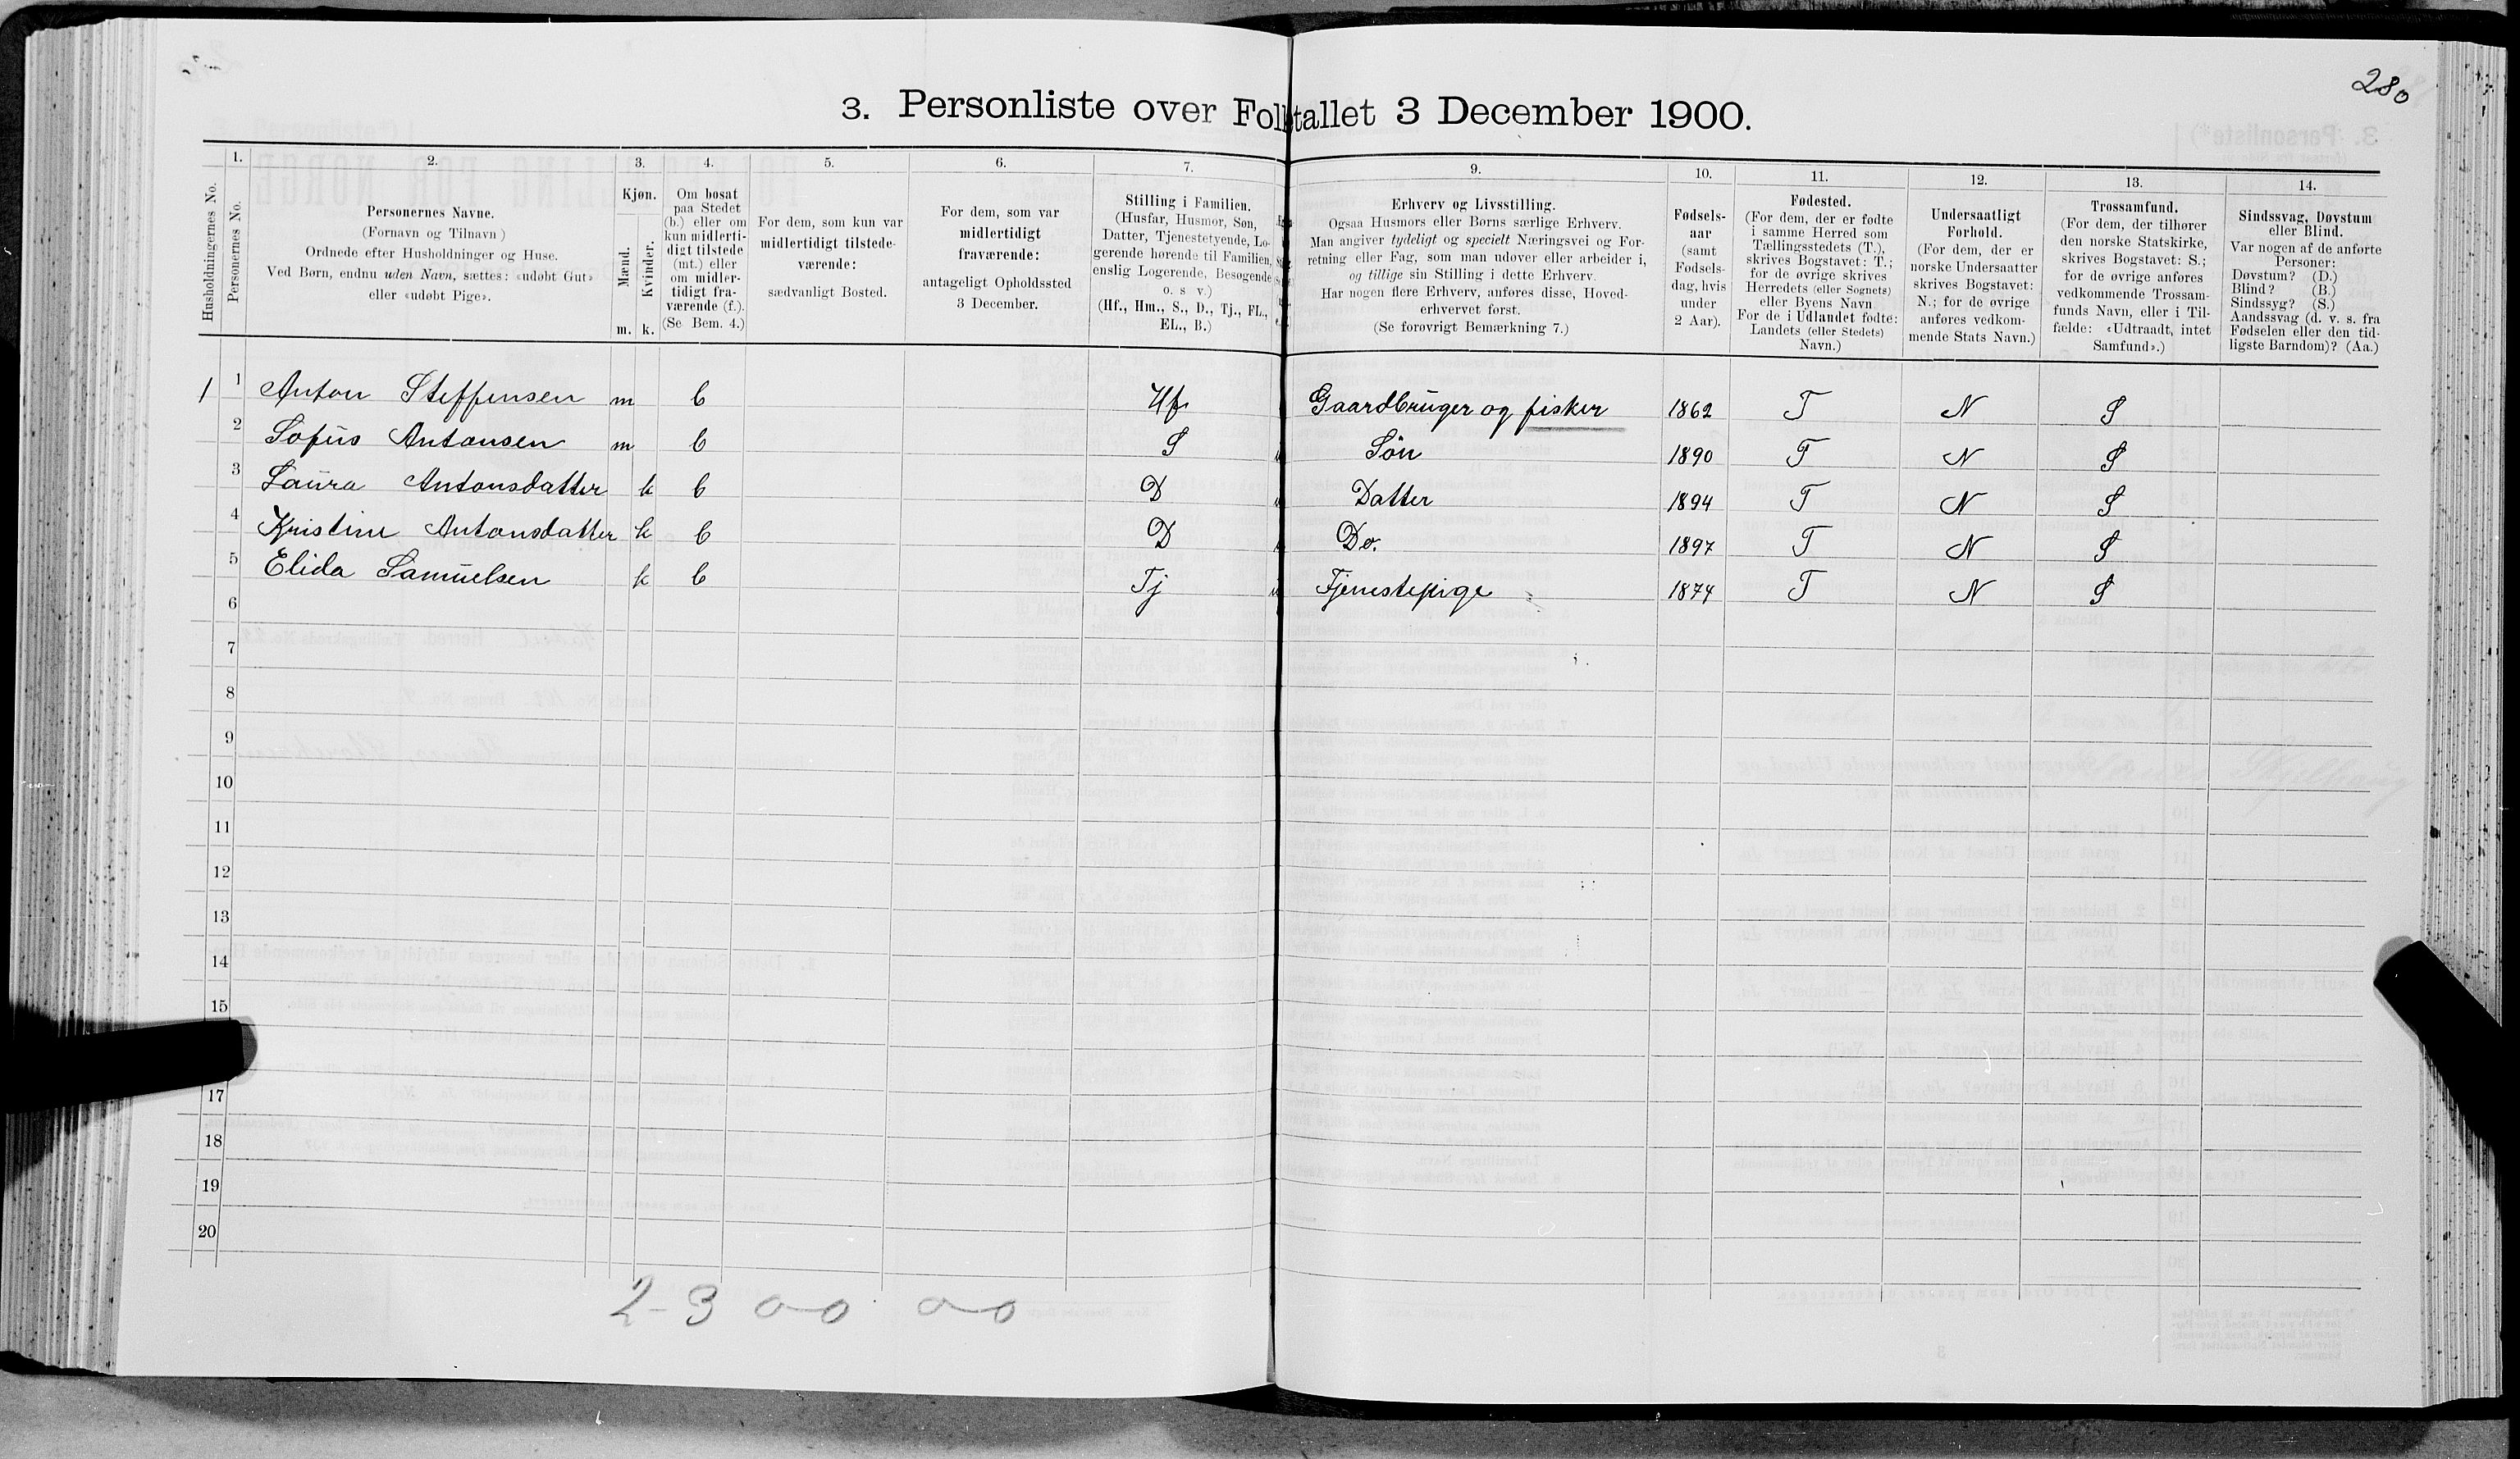 280
3. Personliste over Folketallet 3 December 1900.
Husholdningernes No.
1.
Personernes No.
2.
Personernes Navne.
(Fornavn og Tilnavn)
Ordnede efter Husholdninger og Huse.
Ved Børn, endnu uden Navn, sættes: «udøbt Gut»
eller «udøbt Pige».
3.
Kjøn.
Mænd.
Kvinder.
m. k.
4.
Om bosat
paa Stedet
(b.) eller om
kun midlerti-
digt tilstede
(mt.) eller
om midler-
tidigt fra-
værende (f.).
(Se Bem. 4.)
5.
For dem, som kun var
midlertidigt tilstede-
værende:
sædvanligt Bosted.
6.
For dem, som var
midlertidigt
fraværende:
antageligt Opholdssted
3 December.
7.
Stilling i Familien.
(Husfar, Husmor, Søn,
Datter, Tjenestetyende, Lo-
gerende hørende til Familien,
enslig Logerende, Besøgende
o. s v.)
(Hf., Hm., S., D., Tj., FL.,
EL., B.)
9.
Erhverv og Livsstilling.
Ogsaa Husmors eller Børns særlige Erhverv.
Man angiver tydeligt og specielt Næringsvei og For-
retning eller Fag, som man udøver eller arbeider i,
og tillige sin Stilling i dette Erhverv.
Har nogen flere Erhverv, anføres disse, Hoved-
erhvervet først.
(Se forøvrigt Bemærkning 7.)
10.
Fødsels-
aar
(samt
Fødsels-
dag, hvis
under
2 Aar).
11.
Fødested.
(For dem, der er fødte
i samme Herred som
Tællingsstedets (T.),
skrives Bogstavet: T.;
for de øvrige skrives
Herredets (eller Sognets)
eller Byens Navn
For de i Udlandet fødte:
Landets (eller Stedets)
Navn.)
12.
Undersaatligt
Forhold.
(For dem, der er
norske Undersaatter
skrives Bogstavet:
N.; for de øvrige
anføres vedkom-
mende Stats Navn.)
13.
Trossamfund.
(For dem, der tilhører
den norske Statskirke,
skrives Bogstavet: S.;
for de øvrige anføres
vedkommende Trossam-
funds Navn, eller i Til-
fælde: «Udtraadt, intet
Samfund».)
14.
Sindssvag, Døvstum
eller Blind.
Var nogen af de anførte
Personer:
Døvstum? (D.)
Blind? (B.)
Sindssyg? (S.)
Aandssvag (d. v. s. fra
Fødselen eller den tid-
ligste Barndom)? (Aa.)
1 1 Anton Steffensen m b Hf Gaardbruger og fisker 1862 T N S
2 Sofus Antonsen m b S Søn 1890 T N S
3 Laura Antonsdatter k b D Datter 1894 T N S
4 Kristine Antonsdatter k b D Do. 1897 T N S
5 Elida Samuelsen k b Tj Tjenestepige 1874 T N S
6
7
8
9
10
11
12
13
14
15
17
18
19
20
2-3 0-0 0-0